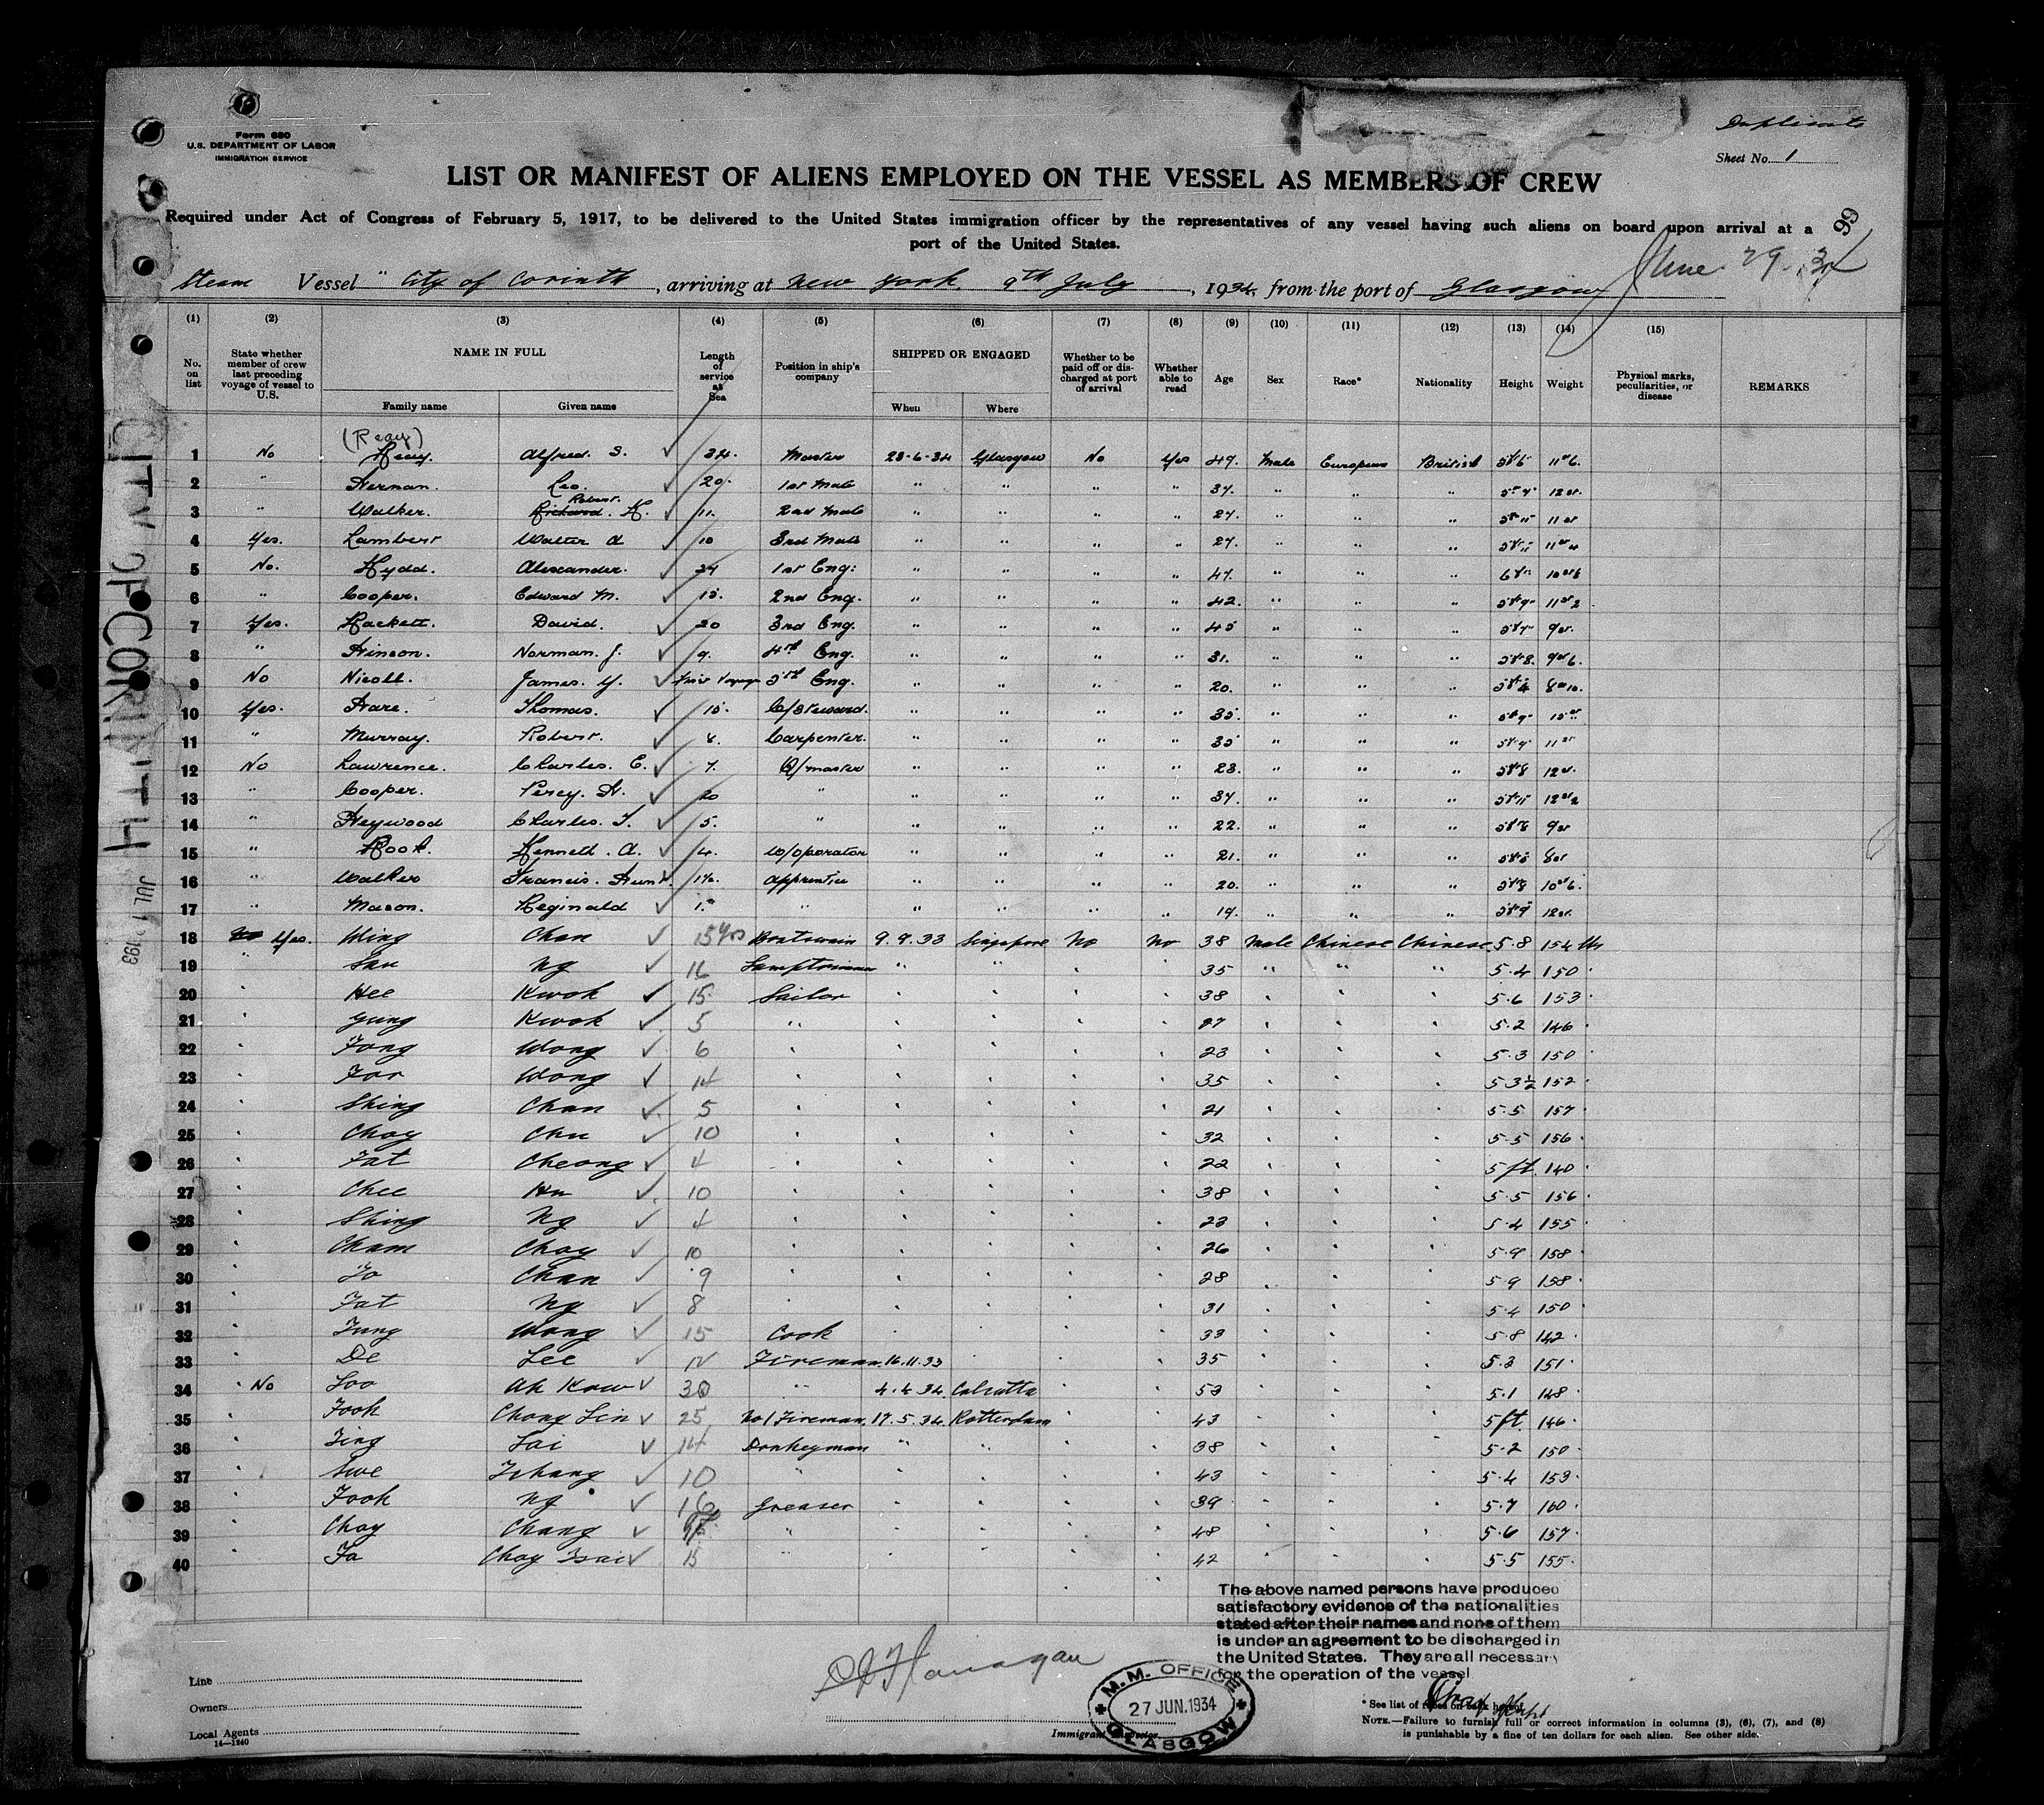 Form 680
U.S. DEPARTMENT OF LABOR
IMMIGRATION SERVICE
Duplicate
Sheet No. 1
LIST OR MANIFEST OF ALIENS EMPLOYED ON THE VESSEL AS MEMBERS OF CREW
Required under Act of Congress of February 5, 1917, to be delivered to the United States immigration officer by the representatives of any vessel having such aliens on board upon arrival at a
port of the United States.
99
June 29. 34
Steam Vessel "City of Corinth, arriving at New York. 9th July, 1934, from the port of Glasgow
(1) (2) (3) (4) (5) (6) (7) (8) (9) (10) (11) (12) (13) (14) (15)
No. on list State whether member of crew last preceding voyage of vessel to U.S. NAME IN FULL Length of service at Sea Position in ship's company SHIPPED OR ENGAGED Whether to be paid off or discharged at port of arrival Whether able to read Age Sex Race* Nationality Height Weight Physical marks, peculiarities, or disease REMARKS
Family name Given name When Where
(Reay)
1 No Reay. Alfred. S. 34. Master 23-6-34 Glasgow No Yes 49. Male European British 5'6 11st 6.
2 " Leo. 20. 1st Mate " " " " 37. " " " 12st.
Robert.
3 " Walker. Richard. H. 11. 2nd Mate " " " " 27. " " " 5'11" 11st
4 Yes. Lambert Walter A 10 3rd Mate " " " " 27. " " " 5'11" 11st 4
5 No. Alexander. 1st Eng: " " " " 47. " " " 10st 6
6 " Cooper. Edward M. 15. 2nd Eng. " " " " 42. " " " 5'9" 11st 2
7 Yes. Hackett. David. 20 3rd Eng. " " " " 45 " " " 5'7" 9st.
8 " Norman. J. 9. 4th Eng. " " " " 31. " " " 5'8. 9st 6.
9 No Nicoll. James. Y. First Voyage 5th Eng. " " " " 20. " " " 5'4 8st 10.
10 Yes. Hare. Thomas. 15. C/Steward. " " " " 35. " " "
11 " Murray. Robert. 8. Carpenter. " " " " 35 " " " 11st
12 No Lawrence. Charles. E. 7. Q/master " " " " 23. " " " 5'8 12st.
13 " Cooper. Percy. H. 20 " " " " " 37. " " " 5'11" 12st 2
14 " Heywood Charles. T. 5. " " " " " 22. " " " 5'8 9st
15 " Hook. Kenneth. A. 4. W/operator " " " " 21. " " " 5'5 8st
16 " Walker Francis. Hunt. 1½. apprentice " " " " 20. " " " 5'8 10st 6.
17 " Mason. Reginald 1. " " " " " 19. " " " 5'9 12st.
18 No Yes. Wing Chan 15 Yrs Boatswain 9.9.33 Singapore No No 38 Male Chinese Chinese 5.8 154 lbs
19 " San Ng 16 Lamptrimmer " " " " 35 " " " 5.4 150
20 " Hee Kwok 15 Sailor " " " " 38 " " " 5.6 153
21 " Yung Kwok 5 " " " " " 27 " " " 5.2 146
22 " Fong Wong 6 " " " " " 23 " " " 5.3 150
23 " For Wong 14 " " " " " 35 " " " 5 3½ 152
24 " Shing Chan 5 " " " " " 21 " " " 5.5 157
25 " Choy Chu 10 " " " " " 32 " " " 5.5 156
26 " Fat Cheong 4 " " " " " 22 " " " 5 ft. 140
27 " Chee Hu 10 " " " " " 38 " " " 5.5 156
28 " Shing Ng 4 " " " " " 23 " " " 5.4 155
29 " Cham Choy 10 " " " " " 26 " " " 5.9 158
30 " Yo Chan 9 " " " " " 28 " " " 5 9 158
31 " Fat Ng 8 " " " " " 31 " " " 5.4 150
32 " Fung Wong 15 Cook " " " " 33 " " " 5.8 142
33 " De Lee 12 Fireman. 16.11.33 " " " 35 " " " 5.3 151
34 " No Loo Ah Kow 30 " 4.4.34 Calcutta " " 53 " " " 5.1 148
35 " Fook Chong Lin 25 No1 Fireman. 17.5.34. Rotterdam " " 43 " " " 5 ft. 146
36 " Ling Lai 14 Donkeyman " " " " 38 " " " 5.2 150
37 " Swe Tchang 10 " " " " " 43 " " " 5.4 153
38 " Fook Ng 16 Greaser " " " " 39 " " " 5.7 160
39 " Choy Chang " " " " " 48 " " " 5.6 157
40 " Fa Choy Tsai 15 " " " " " 42 " " " 5.5 155
CITY OF CORINTH JUL 193
The above named persons have produced
satisfactory evidence of the nationalities
stated after their names and none of them
is under an agreement to be discharged in
the United States. They are all necessary
for the operation of the vessel
Line
Owners
Local Agents
16—1240
Flanagan
Immigrant Inspector.
M.M. OFFICE
27 JUN. 1934
GLASGOW
* See list of races on back hereof.
NOTE.—Failure to furnish full or correct information in columns (3), (6), (7), and (8)
is punishable by a fine of ten dollars for each alien. See other side.